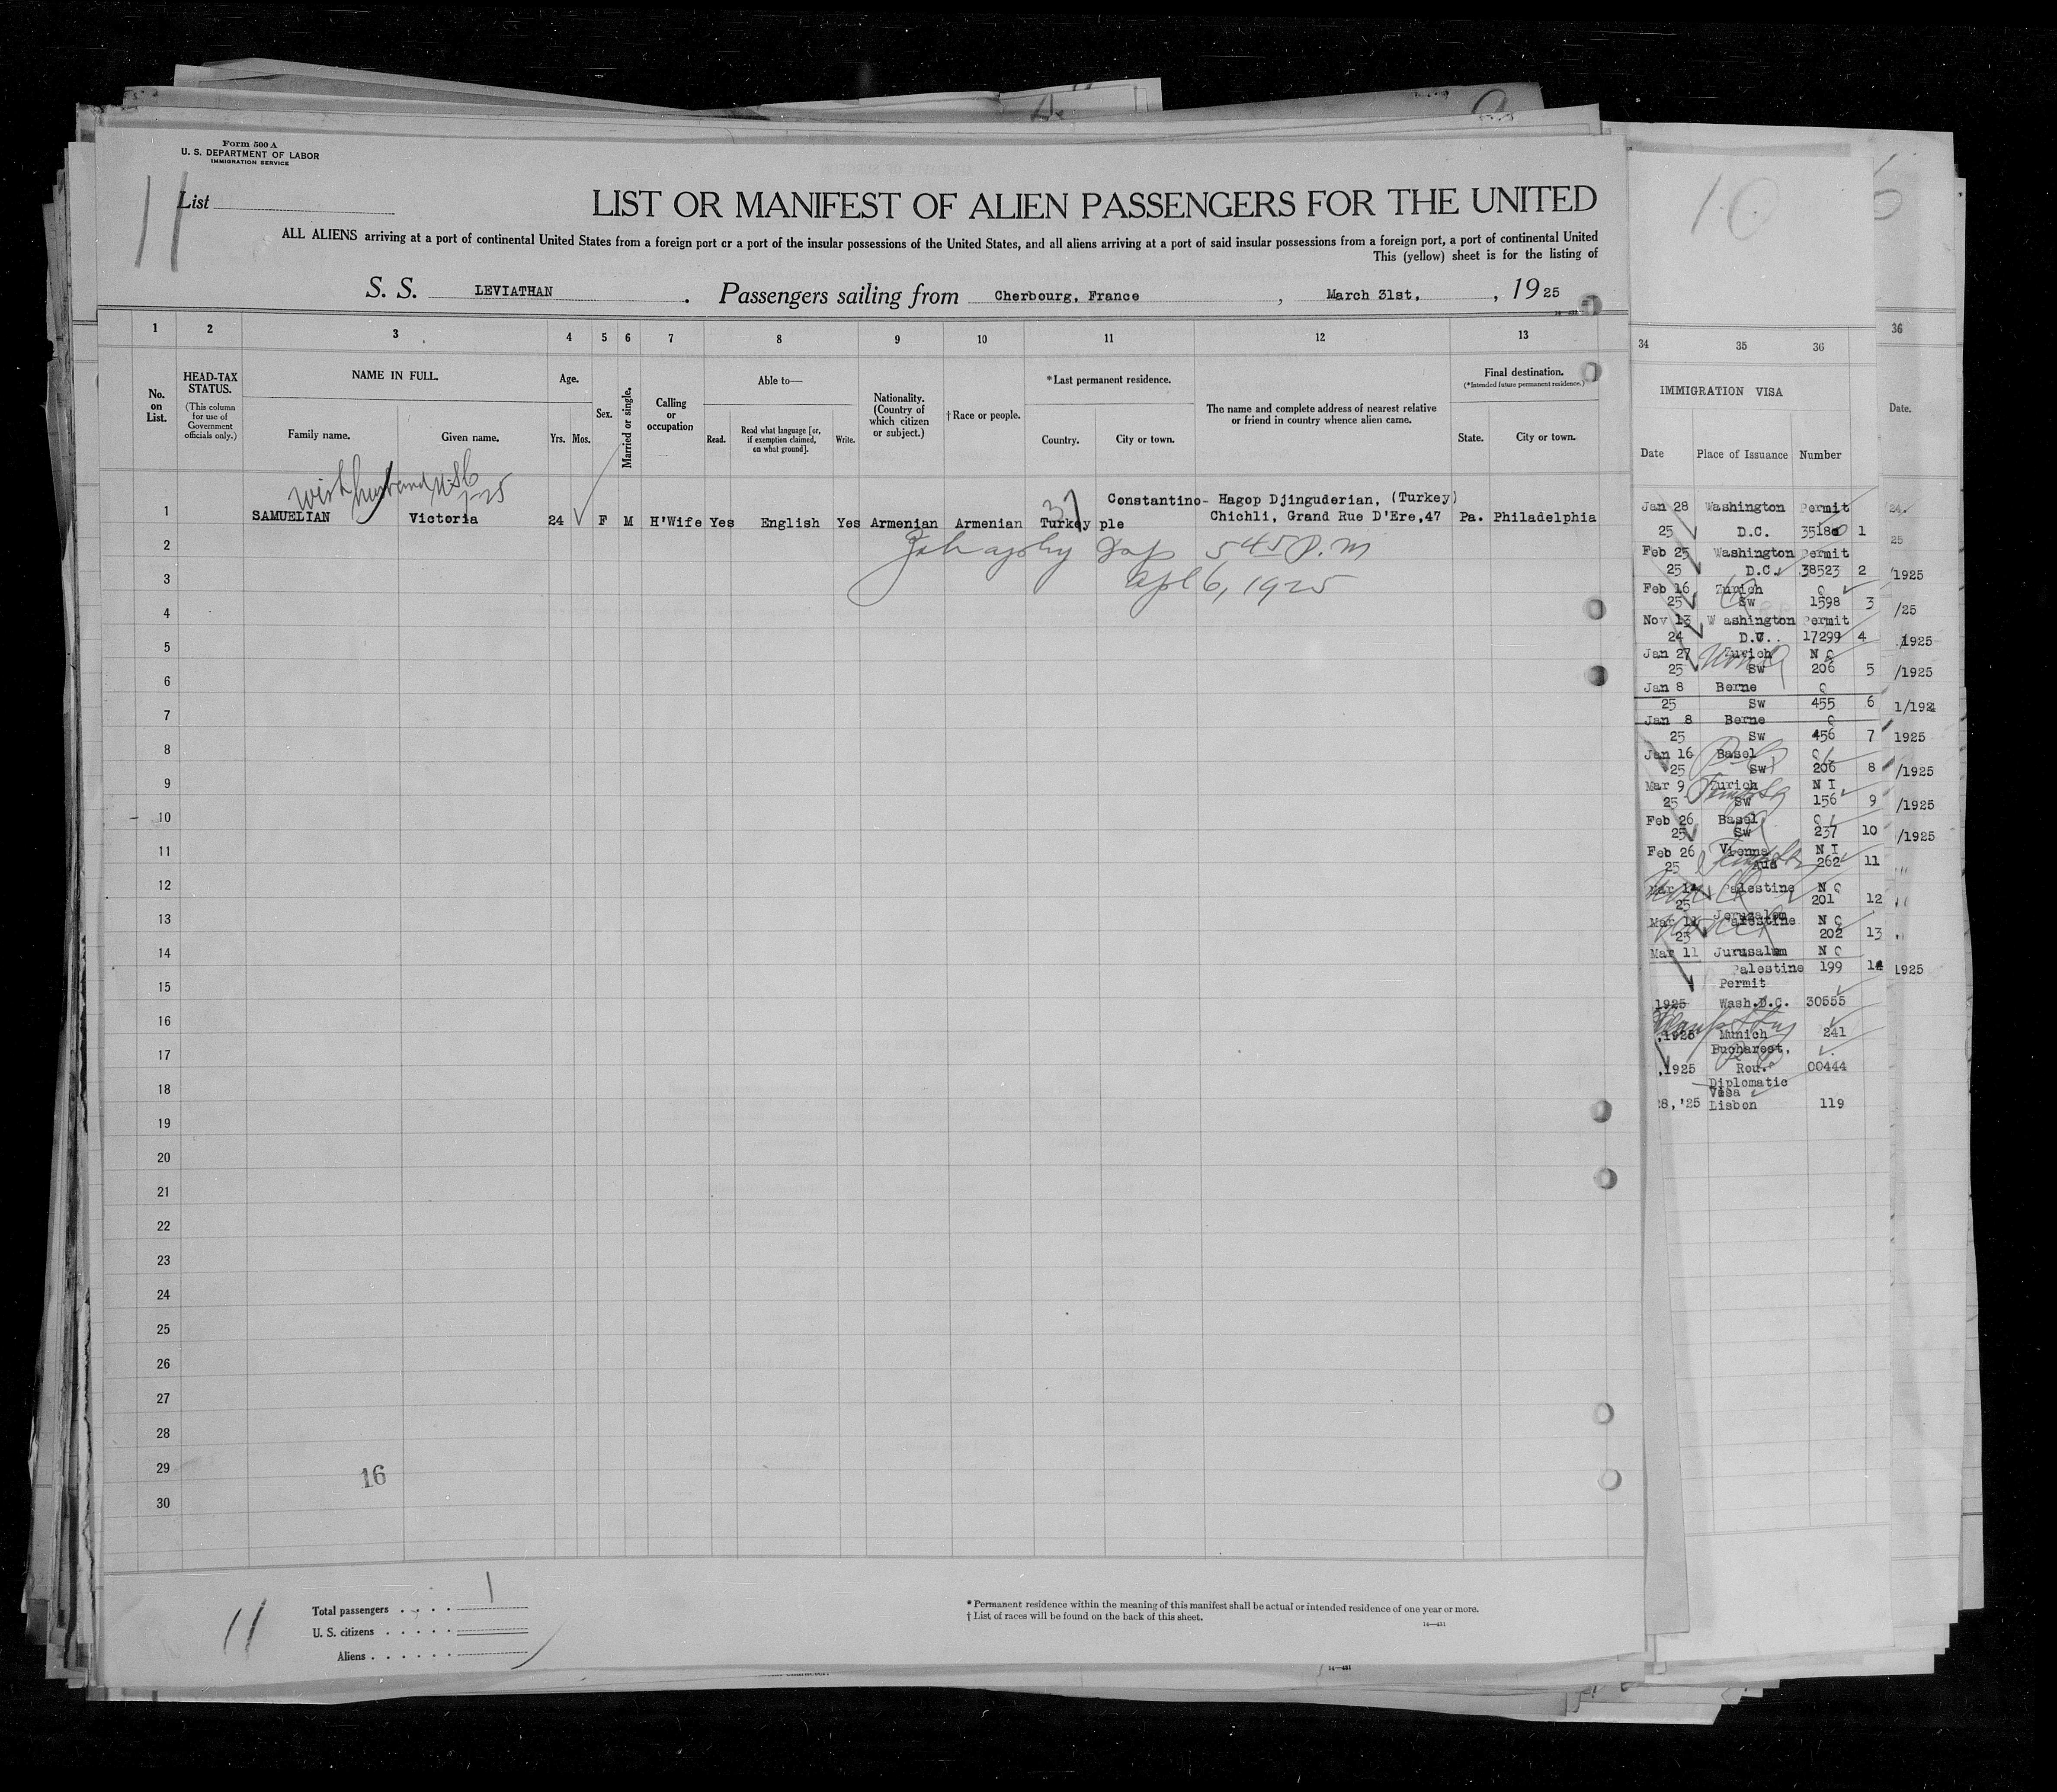 Form 500 A
U. S. DEPARTMENT OF LABOR
IMMIGRATION SERVICE
11
List
LIST OR MANIFEST OF ALIEN PASSENGERS FOR THE UNITED
ALL ALIENS arriving at a port of continental United States from a foreign port or a port of the insular possessions of the United States, and all aliens arriving at a port of said insular possessions from a foreign port, a port of continental United
This (yellow) sheet is for the listing of
S. S. LEVIATHAN. Passengers sailing from Cherbourg, France, March 31st, , 1925
1 2 3 4 5 6 7 8 9 10 11 12 13
No. on List.
HEAD-TAX STATUS.
(This column for use of Government officials only.)
NAME IN FULL.
Family name. Given name.
Age.
Yrs. Mos.
Sex.
Married or single.
Calling or occupation
Able to—
Read. Read what language [or, if exemption claimed, on what ground]. Write.
Nationality. (Country of which citizen or subject.)
†Race or people.
*Last permanent residence.
Country. City or town.
The name and complete address of nearest relative or friend in country whence alien came.
Final destination.
(*Intended future permanent residence.)
State. City or town.
with husband
Constantino- Hagop Djinguderian, (Turkey)
1 SAMUELIAN Victoria 24 F M H'Wife Yes English Yes Armenian Armenian Turkey ple Chichli, Grand Rue D'Ere,47 Pa. Philadelphia
2 545 P.M
3 Apl 6, 1925
4
5
6
7
8
9
10
11
12
13
14
15
16
17
18
19
20
21
22
23
24
25
26
27
28
29
30
16
11
Total passengers . . . . 1
U. S. citizens . . . . .
Aliens . . . . . .
* Permanent residence within the meaning of this manifest shall be actual or intended residence of one year or more.
† List of races will be found on the back of this sheet.
14—431
10
34 35 36
IMMIGRATION VISA
Date Place of Issuance Number
Jan 28 Washington Permit
25 D.C. 1
Feb 25 Washington Permit
25 D.C. 38523 2
Feb 16 Zurich Q
25 Sw 1598 3
Nov 13 Washington Permit
24 17299 4
Jan 27 Zurich N Q
25 Sw 206 5
Jan 8 Berne Q
25 Sw 455 6
Jan 8 Berne Q
25 Sw 456 7
Jan 16 Basel Q
25 Sw 206 8
Mar 9 Zurich N I
25 Sw 156 9
Feb 26 Basel Q
25 Sw 237 10
Feb 26 Vienna N I
25 Aus 262 11
Mar 14 Palestine N Q
25 201 12
Jerusalem
Mar 11 Palestine N Q
25 202 13
Mar 11 Jurusalem N Q
Palestine 199 14
Permit
1925 Wash.D.C. 30555
,1925 Munich 241
Bucharest,
,1925 Rou. 00444
Diplomatic
Visa
28,'25 Lisbon 119
36
Date.
25
1925
/25
1925
/1925
1/1924
1925
/1925
/1925
/1925
1925